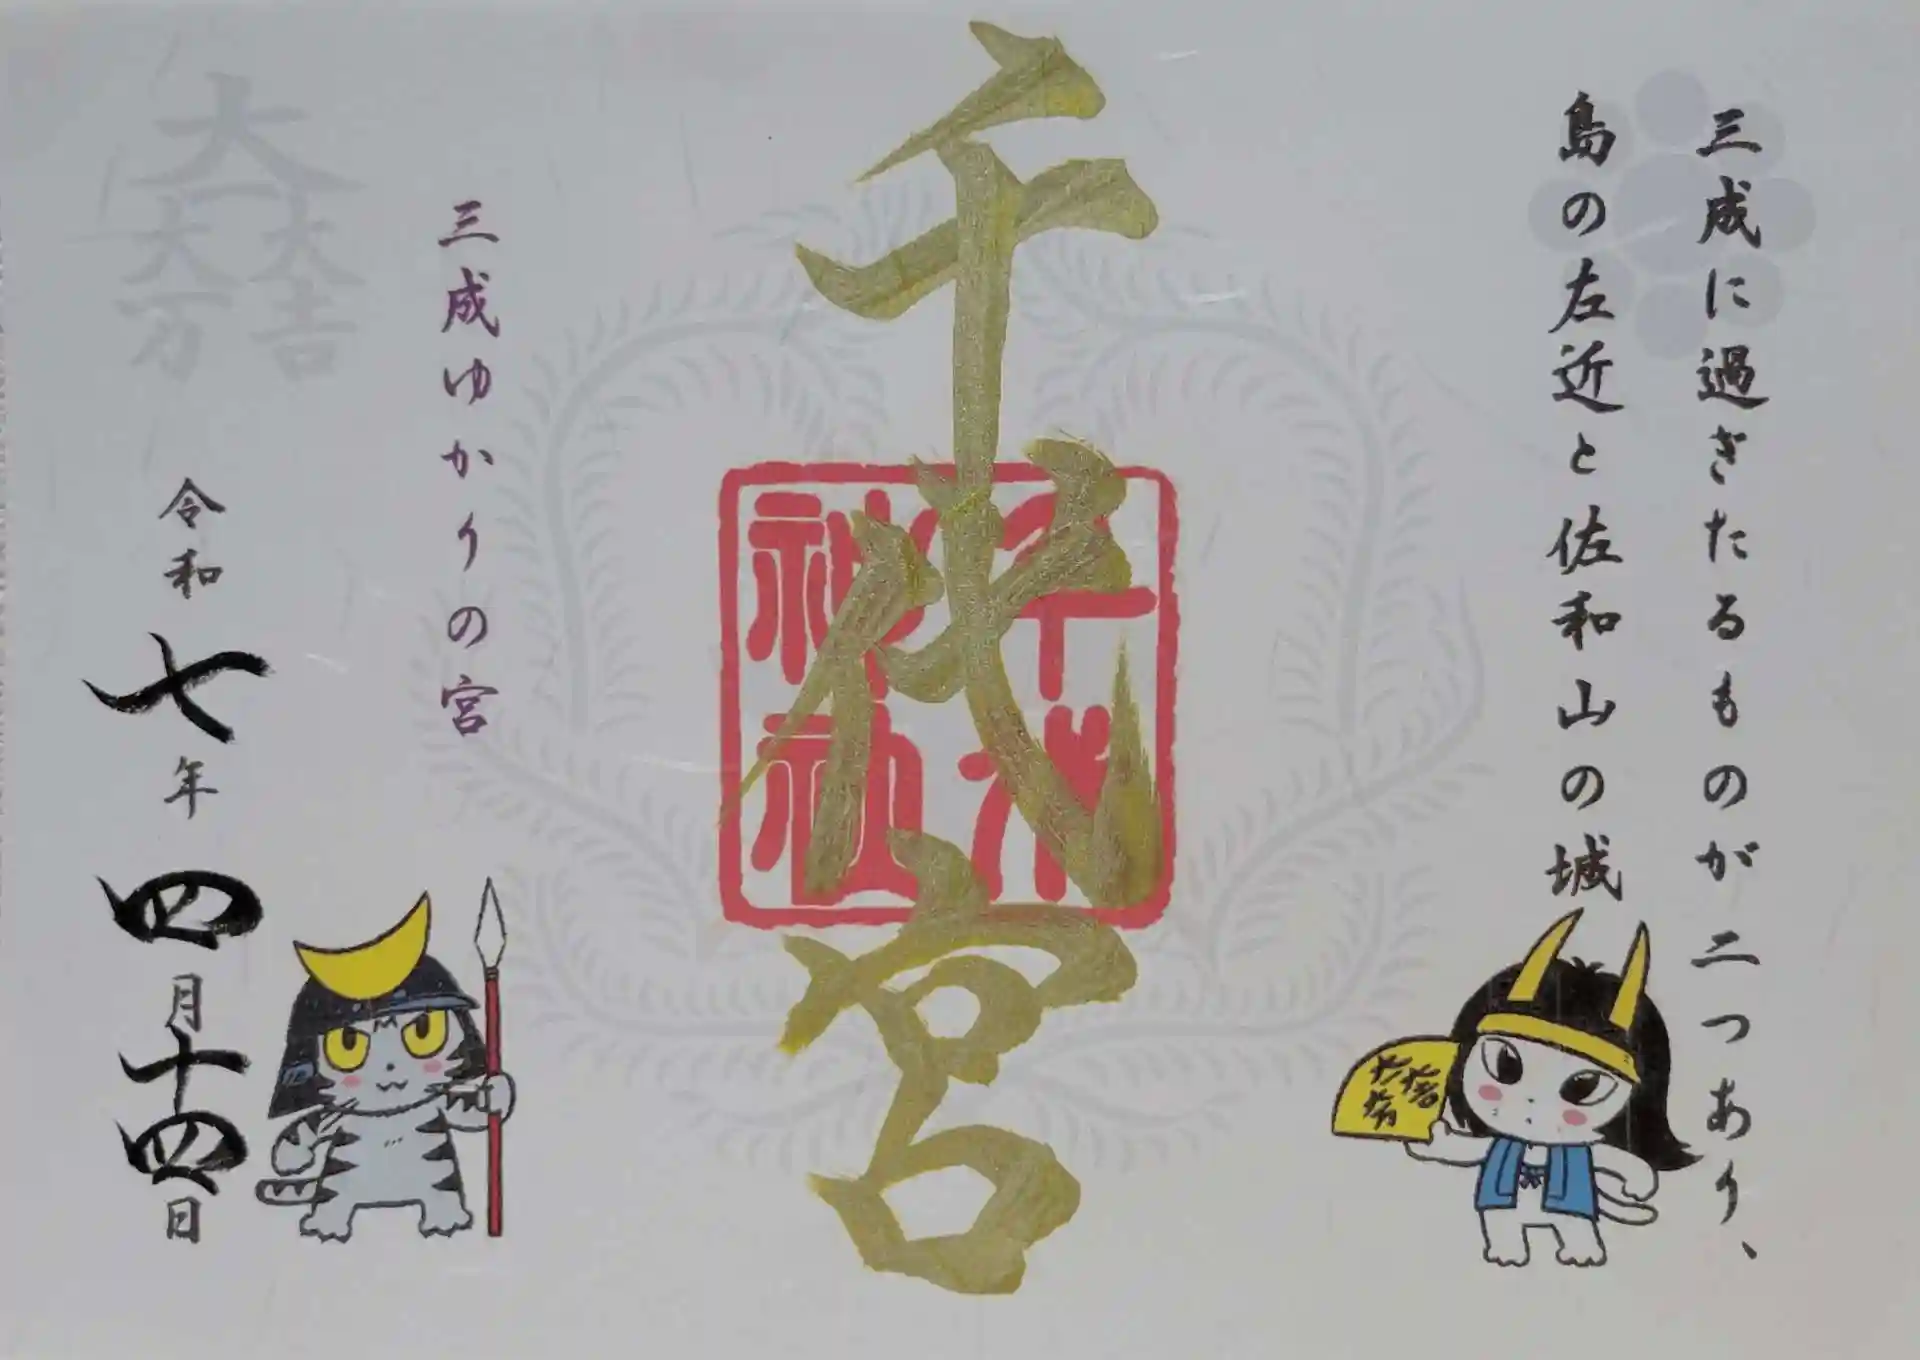 三成に過ぎたるものが二つあり、
島の左近と佐和山の城
千代宮
千代
神社
三成ゆかりの宮
大一大万大吉
令和七年四月十四日
大一大万大吉